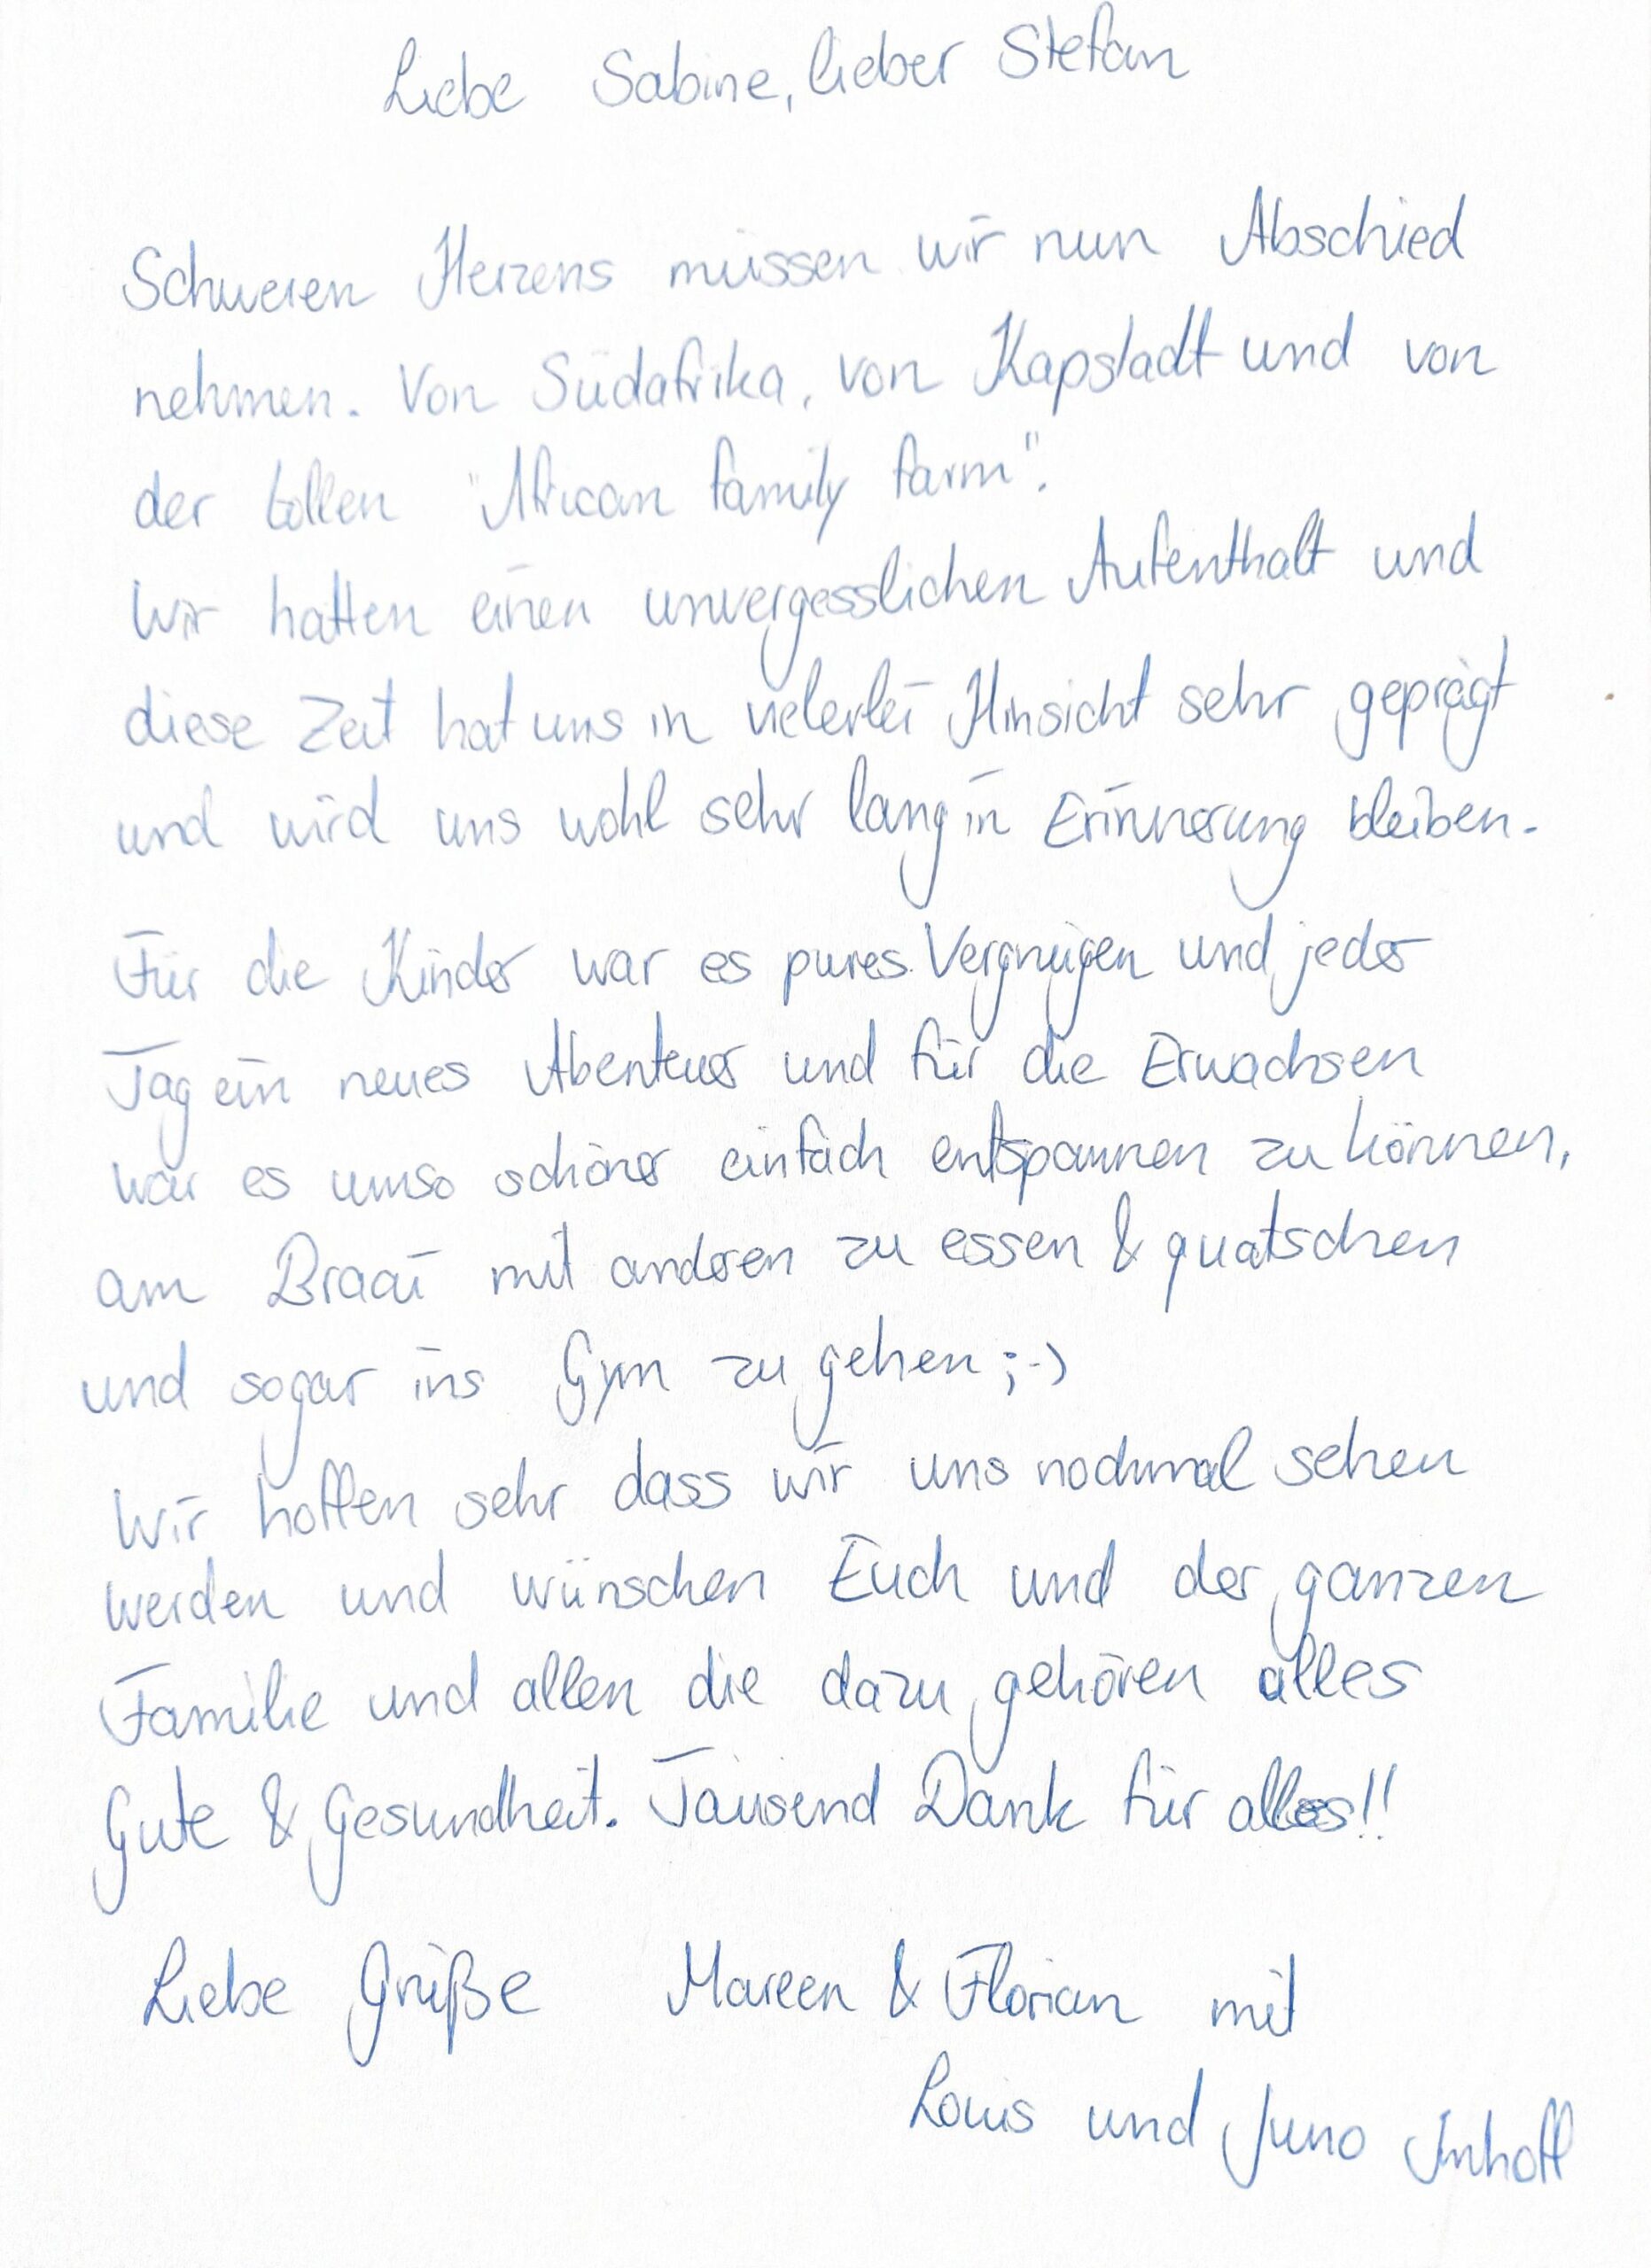 Liebe Sabine, lieber Stefan
Schweren Herzens müssen wir nun Abschied
nehmen. Von Südafrika, von Kapstadt und von
der tollen "African family farm".
Wir hatten einen unvergesslichen Aufenthalt und
diese Zeit hat uns in vielerlei Hinsicht sehr geprägt
und wird uns wohl sehr lang in Erinnerung bleiben.
Für die Kinder war es pures Vergnügen und jeder
Tag ein neues Abenteuer und für die Erwachsen
war es umso schöner einfach entspannen zu können,
am Braai mit anderen zu essen & quatschen
und sogar ins Gym zu gehen ;-)
Wir hoffen sehr dass wir uns nochmal sehen
werden und wünschen Euch und der ganzen
Familie und allen die dazu gehören alles
Gute & Gesundheit. Tausend Dank für alles!!
Liebe Grüße Mareen & Florian mit
Louis und Juno Imhoff